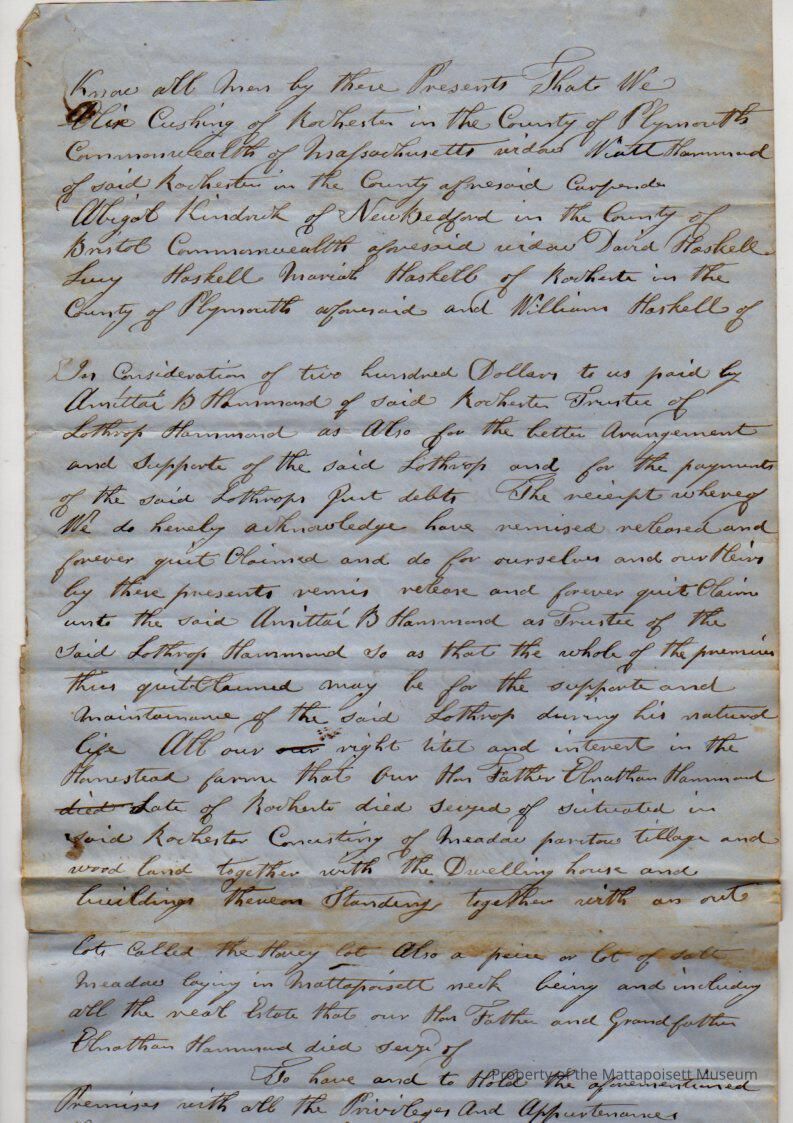 Know all Men by these Presents That We
Olix Cushing of Rochester in the County of Plymouth
Commonwealth of Massachusetts widow Wiatt Hammond
of said Rochester in the County aforesaid Carpender
Abigal Kindrick of New Bedford in the County of
Bristol Commonwealth aforesaid widow David Haskell
Lucy Haskell Mariah Haskell of Rocheste in the
County of Plymouth aforesaid and William Haskell of
In Consideration of two hundred Dollars to us paid by
Amittai B Hammond of said Rochester Trustee of
Lothrop Hammond as Also for the better Arangement
and Supporte of the said Lothrop and for the payments
of the said Lothrops Just debts The reciept whereof
We do hereby acknowledge have remised released and
forever quit Claimed and do for ourselves and our Heirs
by these presents remis release and forever quit Claim
unto the said Amittai B Hammond as Trustee of the
Said Lothrop Hammond so as that the whole of the premises
thus quitClaimed may be for the supporte and
Maintainance of the said Lothrop during his natural
life All our our right titel and interest in the
Homestead farme that Our Hon Father Elnathan Hammond
died Late of Rocheste died seized of situated in
said Rochester Consisting of Meadow pastow tillage and
wood land together with the Dwelling house and
buildings thereon Standing together with an out
lots Called the Haney lot Also a peice or lot of salt
Meadow laying in Mattapoisett neck being and including
all the real Estate that our Hon Father and Grandfather
Elnathan Hammond died seizd of
To have and to Hold the aforementioned
Premises with all the Privileges And Appurtenances
Property of the Mattapoisett Museum